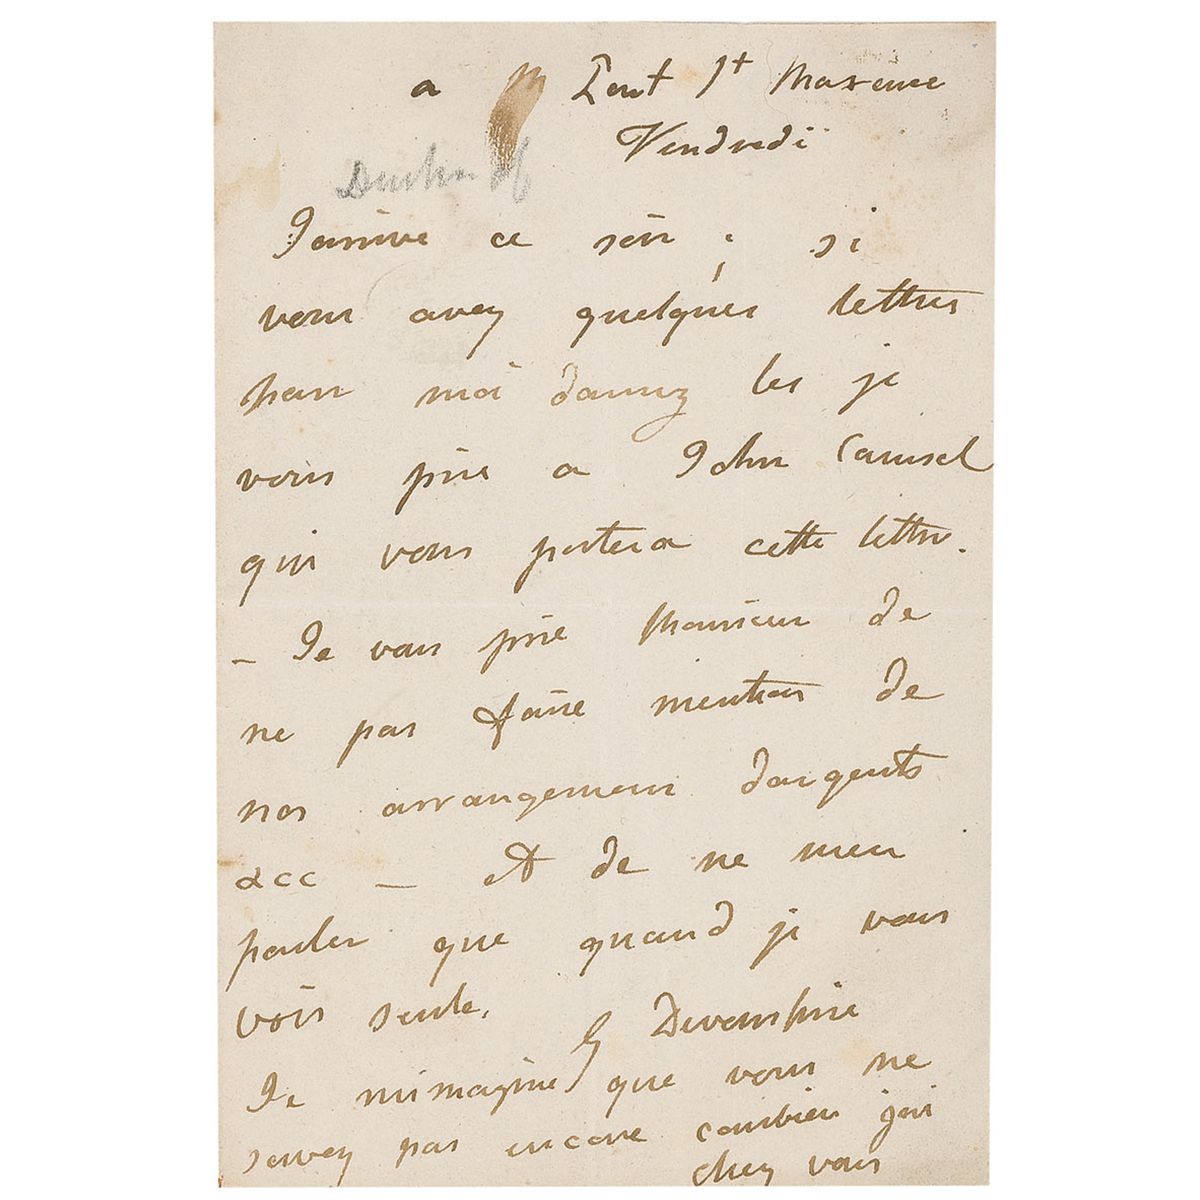 a Pont St Maxence
Vendredi
J'arrive ce soir ; si
vous avez quelques lettres
pour moi donnez les je
vous prie a John
qui vous portera cette lettre.
– Je vous prie Monsieur de
ne pas faire mention de
nos arrangemens d'argents
&cc – Et de ne men
parler que quand je vous
vois seule.
G Devonshire
Je m'imagine que vous ne
savez pas encore combien j'ai
chez vous